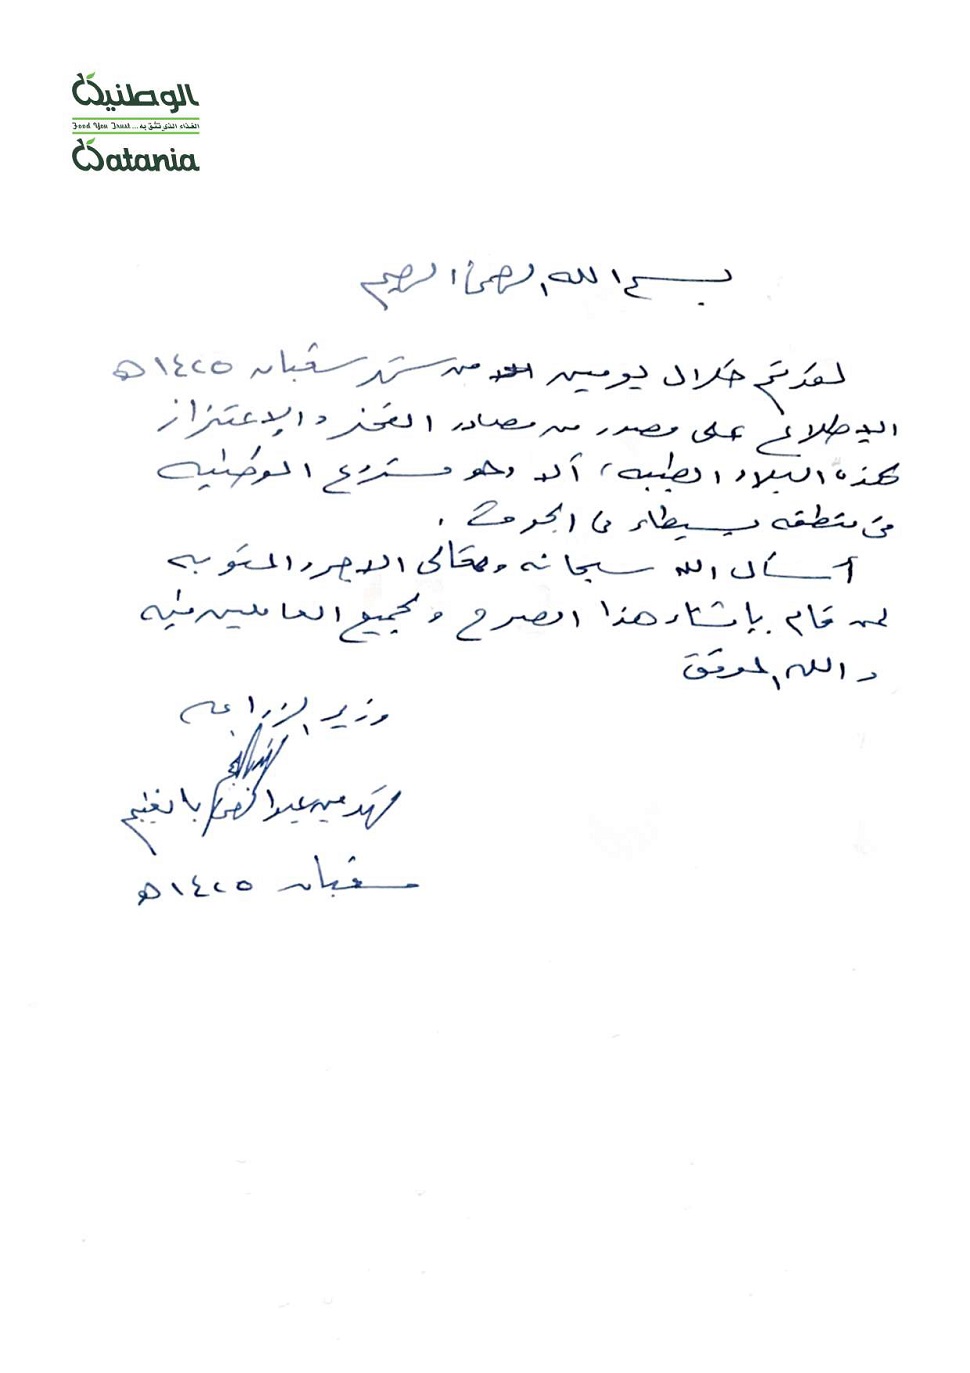 الوطنية
Food You Trust... الغذاء الذي تثق به
Watania
بسم الله الرحمن الرحيم
لقد تم خلال يومين من شهر شعبان ١٤٢٥هـ
الاطلاع على مصدر من مصادر الفخر والاعتزاز
لهذه البلاد الطيبه، ألا وهو مشروع الوطنيه
في منطقه بسيطاء في الجوف.
أسأل الله سبحانه وتعالى الاجر والمثوبه
لمن قام بإنشاء هذا الصرح ولجميع العاملين فيه
والله الموفق
وزير الزراعه
فهد بن عبدالرحمن بالغنيم
شعبان ١٤٢٥هـ